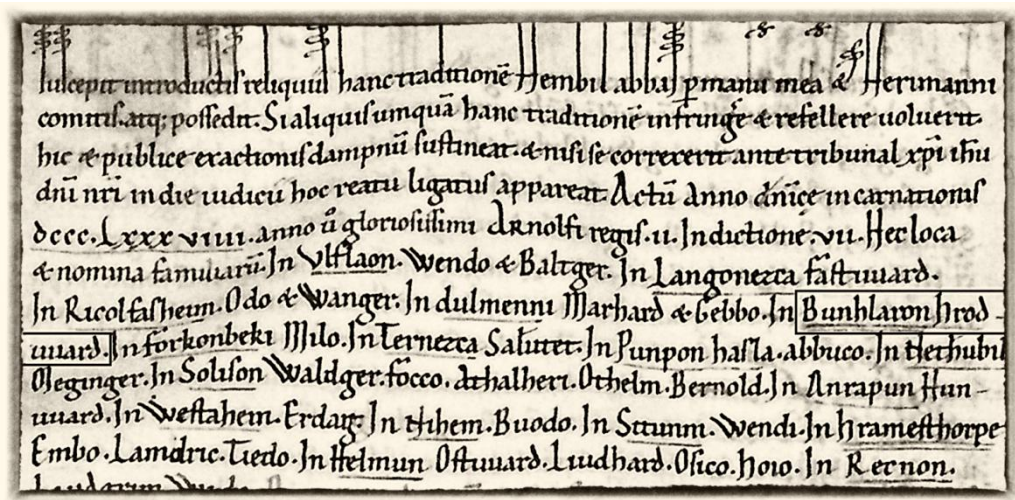 suscepit introductis reliquiis hanc traditionē Hembil abbas ꝑ manu mea & Herimanni
comitis. atq; possedit. Si aliquis umquā hanc traditionē infringe & refellere uoluerit.
hic & publice exactionis dampnū sustineat. & nisi se correxerit ante tribunal xpi ihu
dni nri in die iudicii hoc reatu ligatus appareat. Actū Anno dnicę incarnationis
dccc. Lxxxviiii. anno ů gloriosissimi ARnolfi regis. ii. Indictione. vii. Hec loca
& nomina familiarū. In Vlflaon. Wendo & Baltger. In Langonezca fastuuard.
In Ricolfasheim. Odo & Wanger. In dulmenni Marhard & Gebbo. In Bunhlaron hrod-
uuard. In forkonbeki Milo. In Ternezca Saluter. In Punpon hasla. abbuco. In Hethubil
Meginger. In Solison Waldger. focco. Athalheri. Othelm. Bernold. In Anrapun Hun-
uuard. In Westahem. Erdag. In Hihem. Buodo. In Stunni. Wendi. In hramesthorpe
Embo. Lamdric. Tiedo. In Helmun Ostuuard. Liudhard. Osico. hoio. In Recnon.